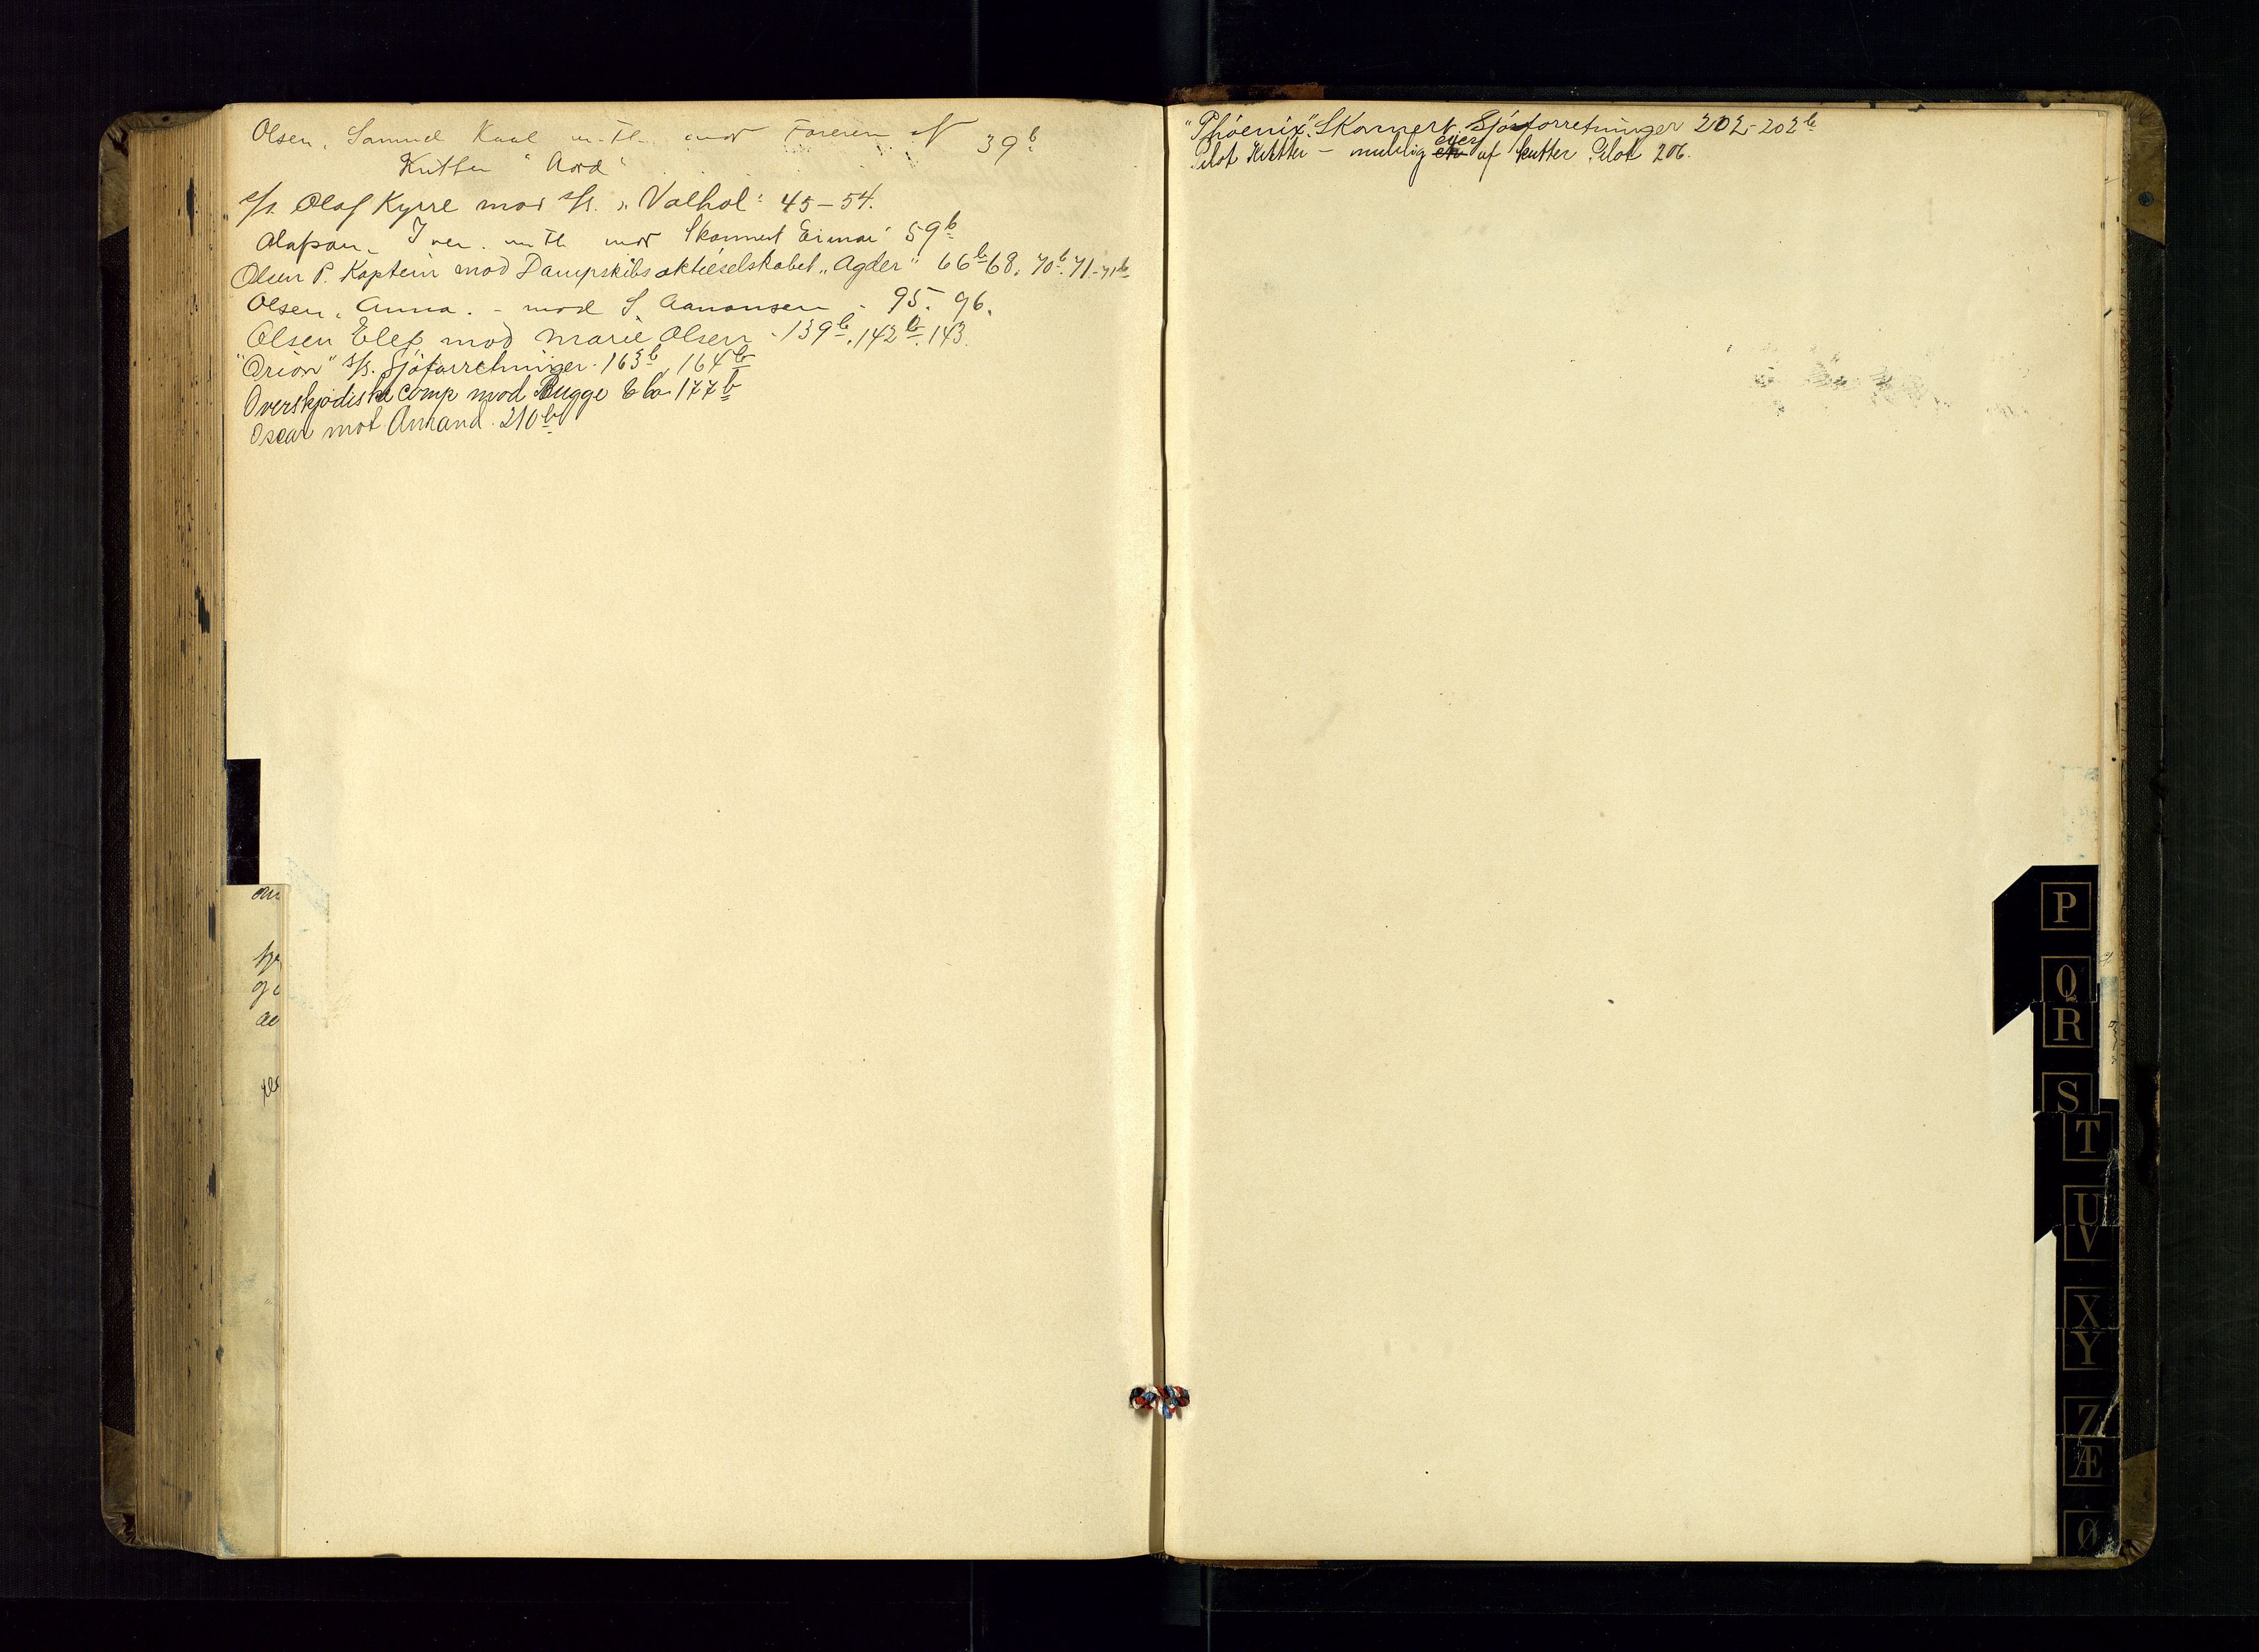 Olsen, Samuel Kaal m. Fl. mod Føreren af 39b
Kutter "Aord"
s/s. Olaf Kyrre mod s/s. „Valhal" 45–54.
Olafsen. Iver. m Fl. mod Skonnert Einar 59b
Olsen P. Kaptein mod Dampskibsaktieselskabet „Agder" 66b 68. 70b. 71-71b
Olsen, Anna. - mod S. Aanonsen - 95. 96.
Olsen Elef mod Marie Olsen - 139b. 142b. 143.
"Orion" s/s. Sjøforretninger. 163b, 164b
Overskjødiske Comp mod Bugge & Co. 177b
Oscar mot Amand. 210b
"Phöenix". Skonnert. Sjøforretninger 202-202b
Pilot Kutter – mulig eier af kutter Pilot 206.
P
Q
R
S
T
U
V
X
Y
Z
Æ
Ø